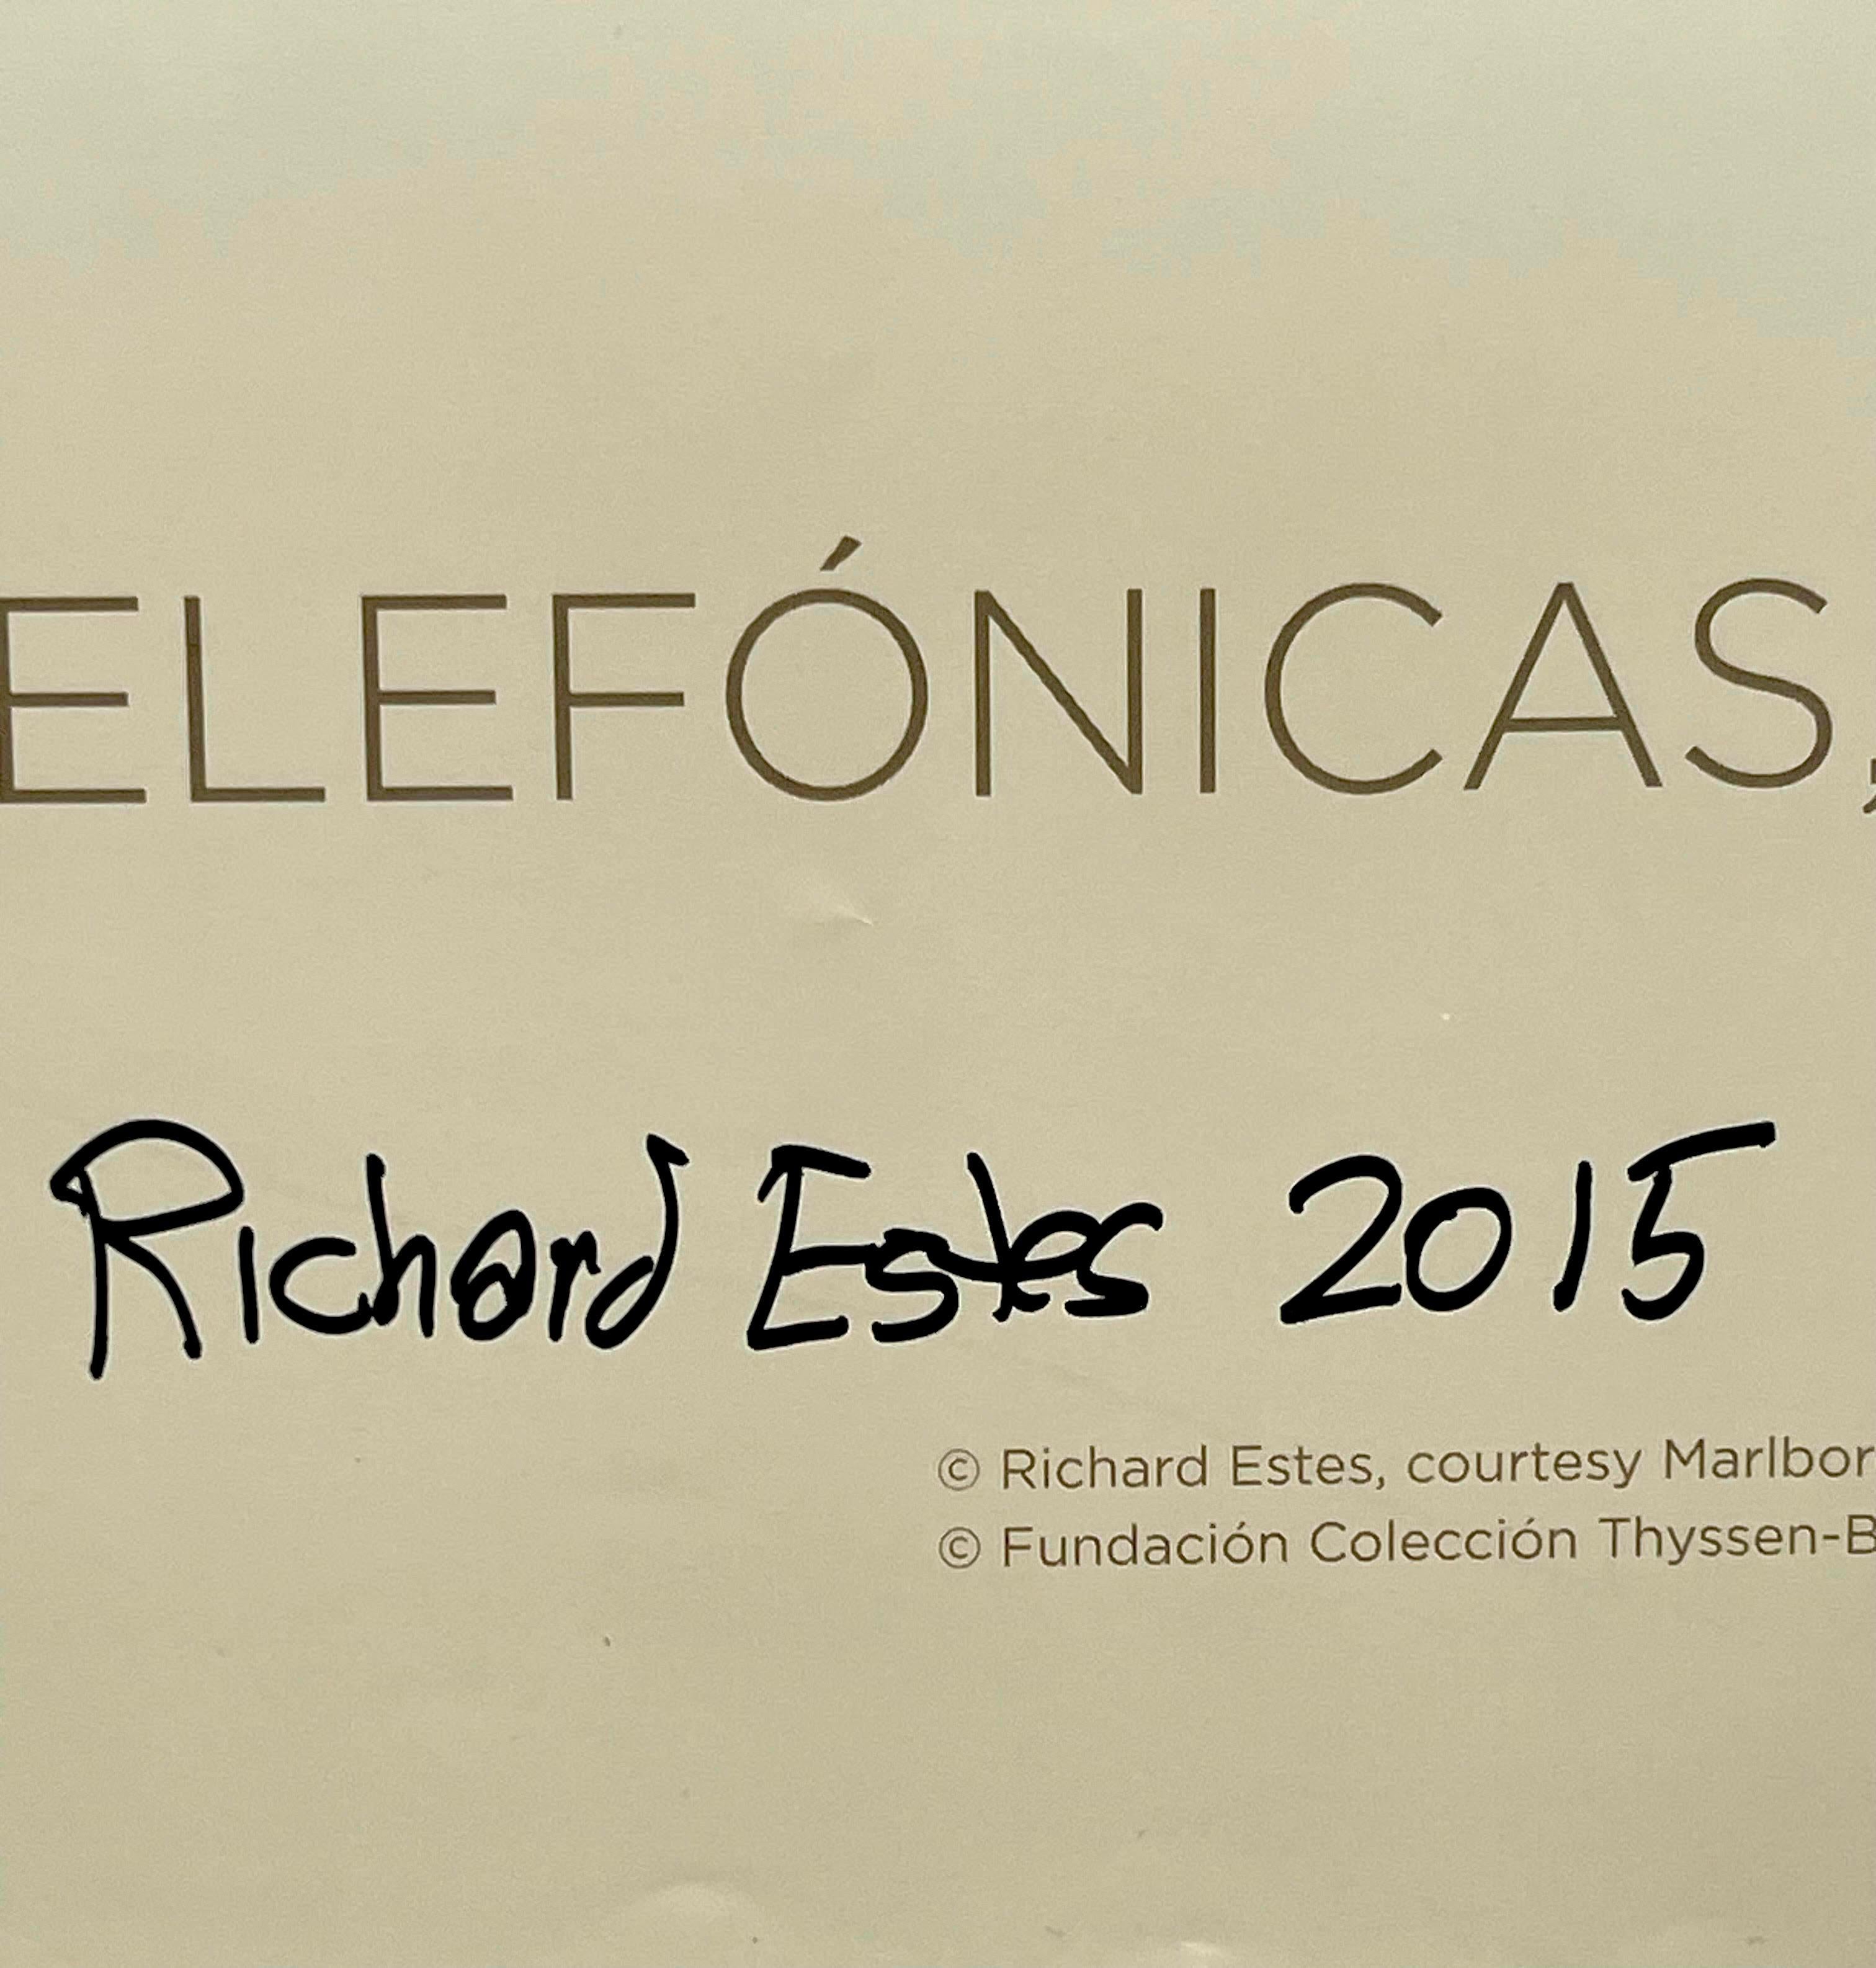 ELEFÓNICAS,
Richard Estes 2015
© Richard Estes, courtesy Marlbor
© Fundación Colección Thyssen-B